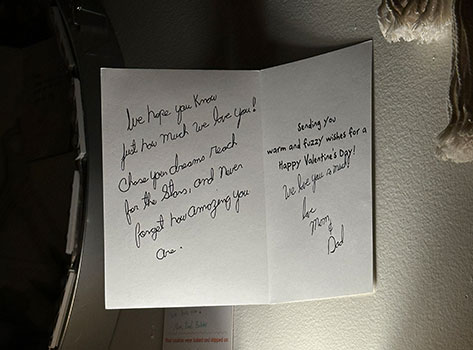 We hope you know
Just how much we love you!
Chase your dreams reach
for the stars, and never
forget how amazing you
are.
Sending you
warm and fuzzy wishes for a
Happy Valentine's Day!
We love you so much!
Love
Mom
&
Dad